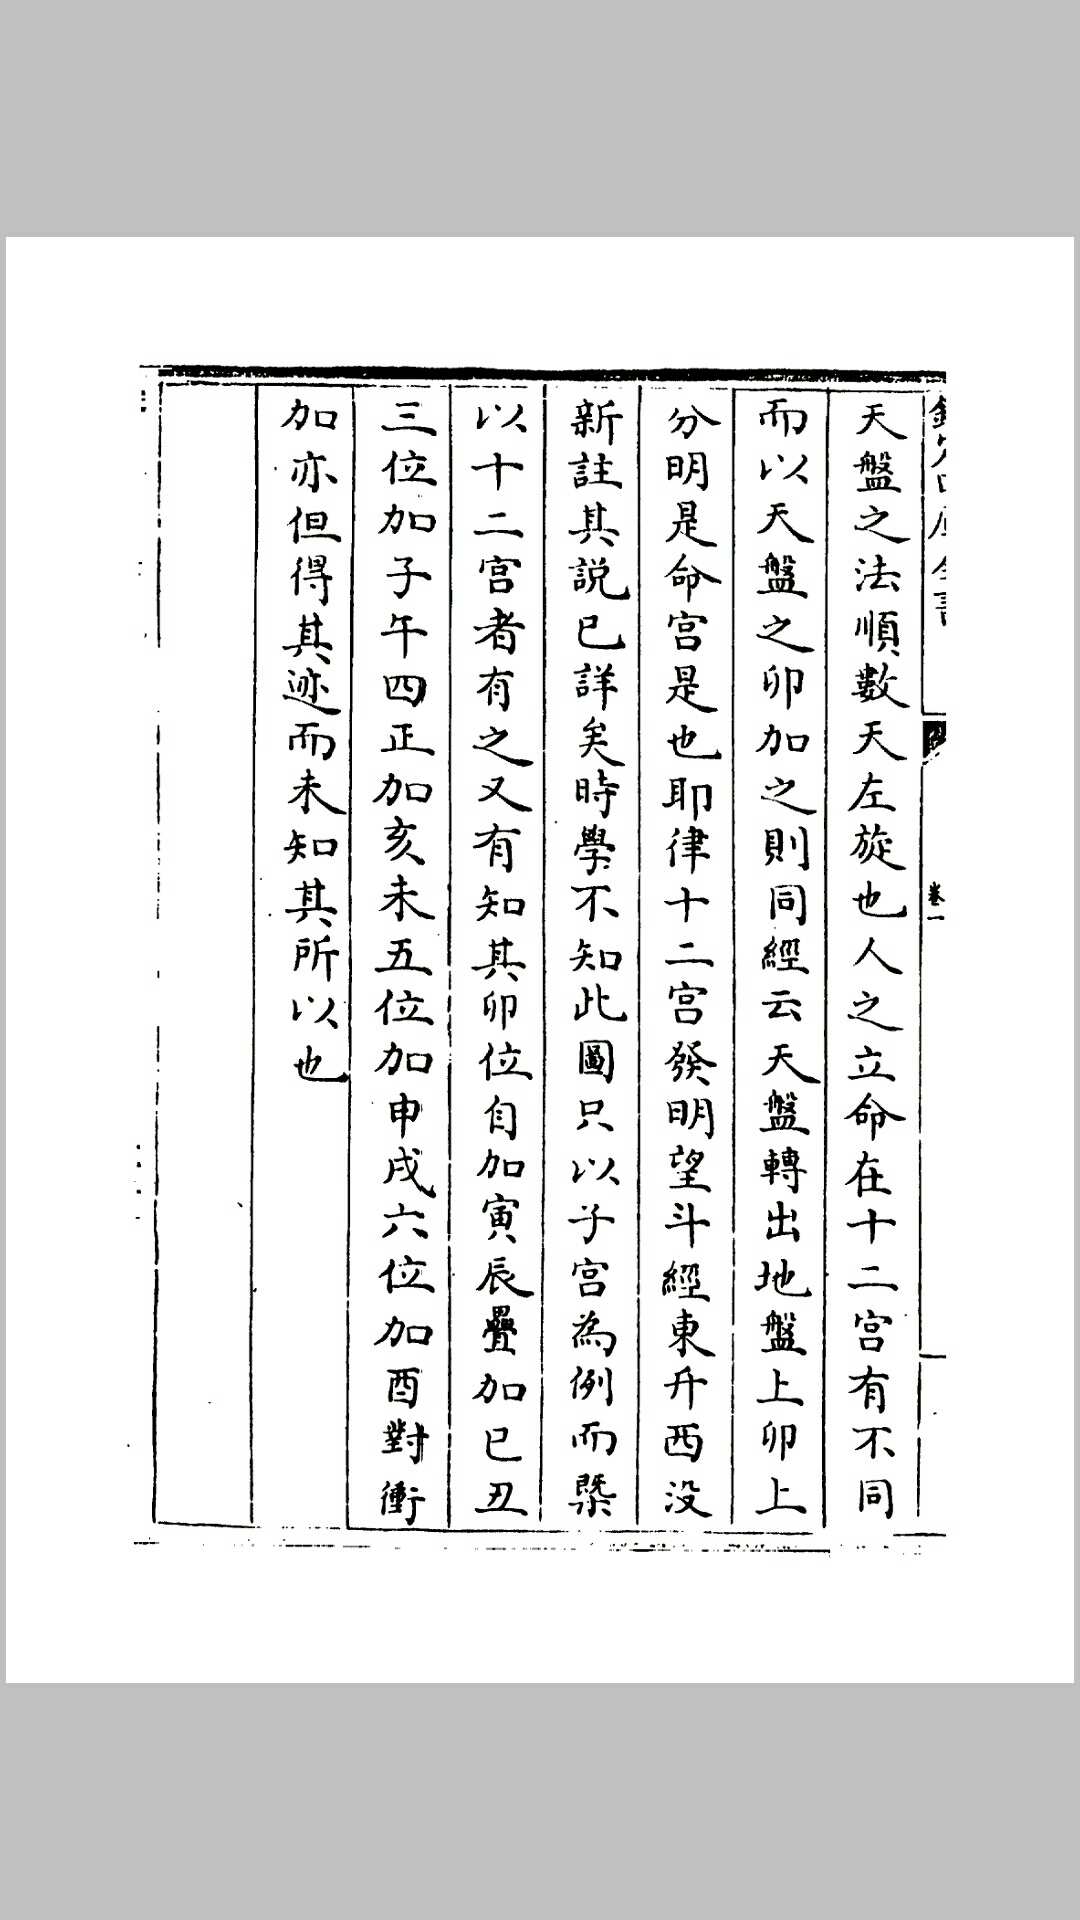 欽定四庫全書
卷一
天盤之法順數天左旋也人之立命在十二宮有不同
而以天盤之卯加之則同經云天盤轉出地盤上卯上
分明是命宮是也耶律十二宮發明望斗經東升西没
新註其説已詳矣時學不知此圖只以子宮為例而槩
以十二宮者有之又有知其卯位自加寅辰疊加巳丑
三位加子午四正加亥未五位加申戌六位加酉對衝
加亦但得其迹而未知其所以也